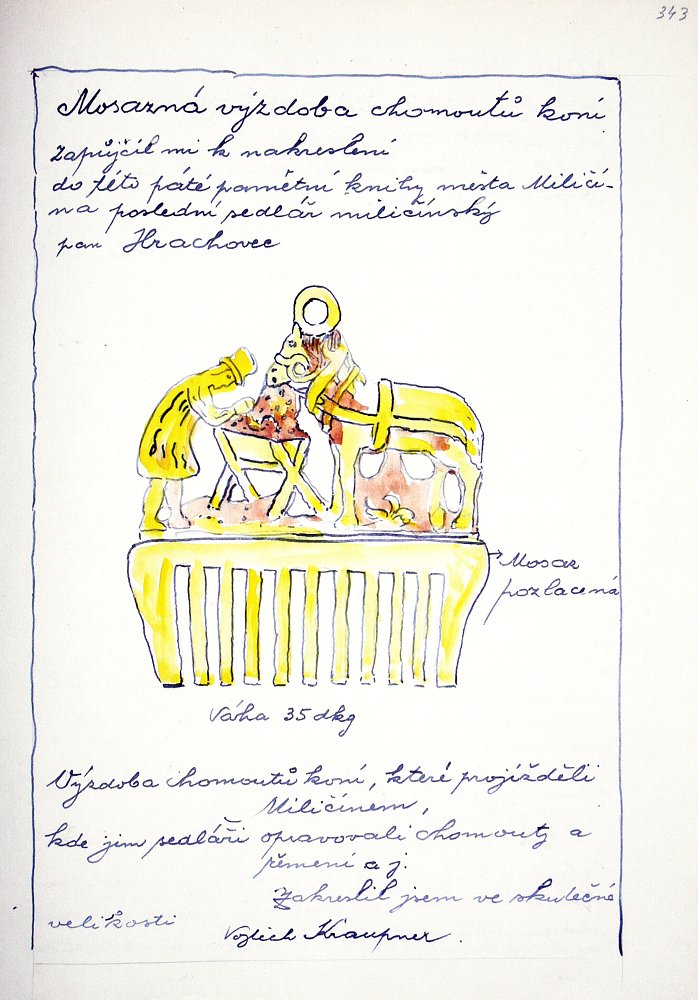 343
Mosazná výzdoba chomoutů koní
Zapůjčil mi k nakreslení
do této páté pamětní knihy města Miličí-
na poslední sedlář miličínský
pan Hrachovec
Mosaz
pozlacená
Váha 35 dkg
Výzdoba chomoutů koní, které projížděli
Miličínem,
kde jim sedláři opravovali chomouty a
řemení a j.
Zakreslil jsem ve skutečné
velikosti
Vojtěch Kraupner.